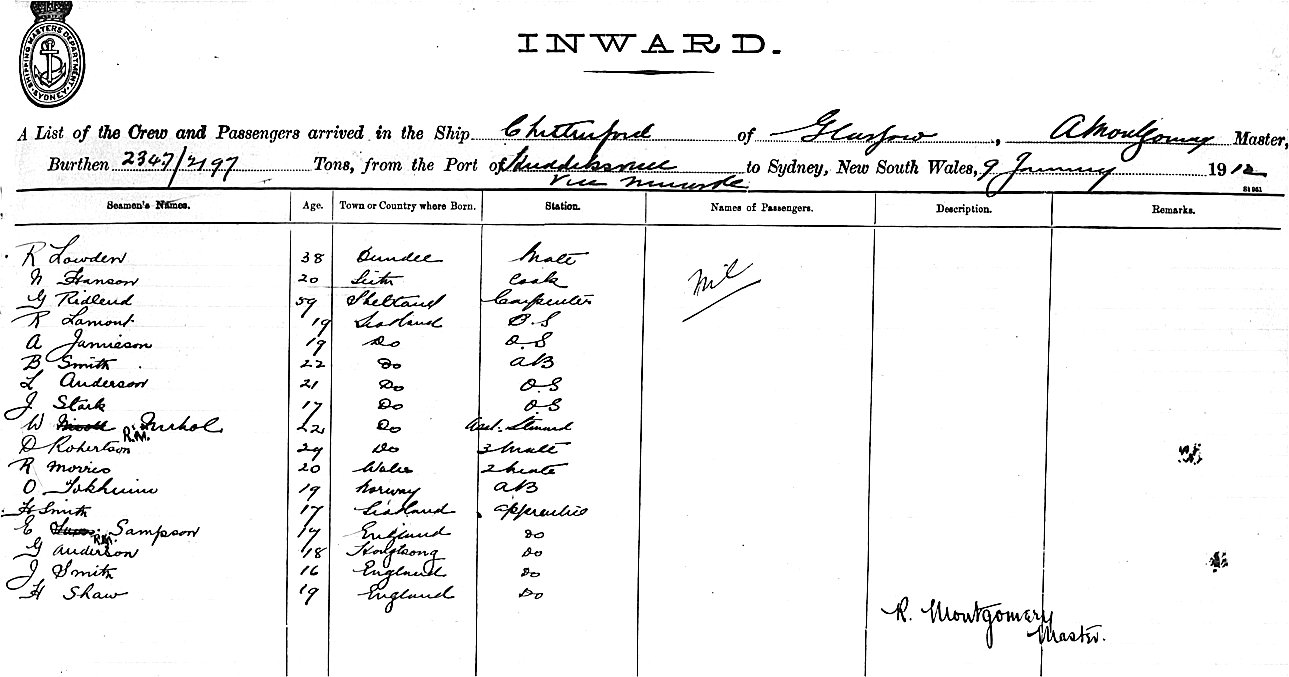 SHIPPING MASTERS DEPARTMENT. SYDNEY.
INWARD.
A List of the Crew and Passengers arrived in the Ship Chetterford of Glasgow, A Montgomery Master,
Burthen 2347/2197 Tons, from the Port of to Sydney, New South Wales, 9 January 1912
Seamen's Names. Age. Town or Country where Born. Station. Names of Passengers. Description. Remarks.
R Lowden 38 Dundee Mate
N Hanson 20 Leith Cook Nil
G Ridland 59 Shetland Carpenter
R Lamont 19 Scotland O.S
A Jamieson 19 Do O.S
B Smith 22 Do AB
L Anderson 21 Do O.S
J Stark 17 Do O.S
W Nichol R.M. 22 Do Asst. Steward
D Robertson 29 Do 3 Mate
R Morris 20 Wales 2 Mate
O Tokheim 19 Norway AB
H Smith 17 Scotland Apprentice
E Sampson R.M. 17 England Do
G Anderson 18 Hongkong Do
J Smith 16 England Do
H Shaw 19 England Do
R. Montgomery
Master.